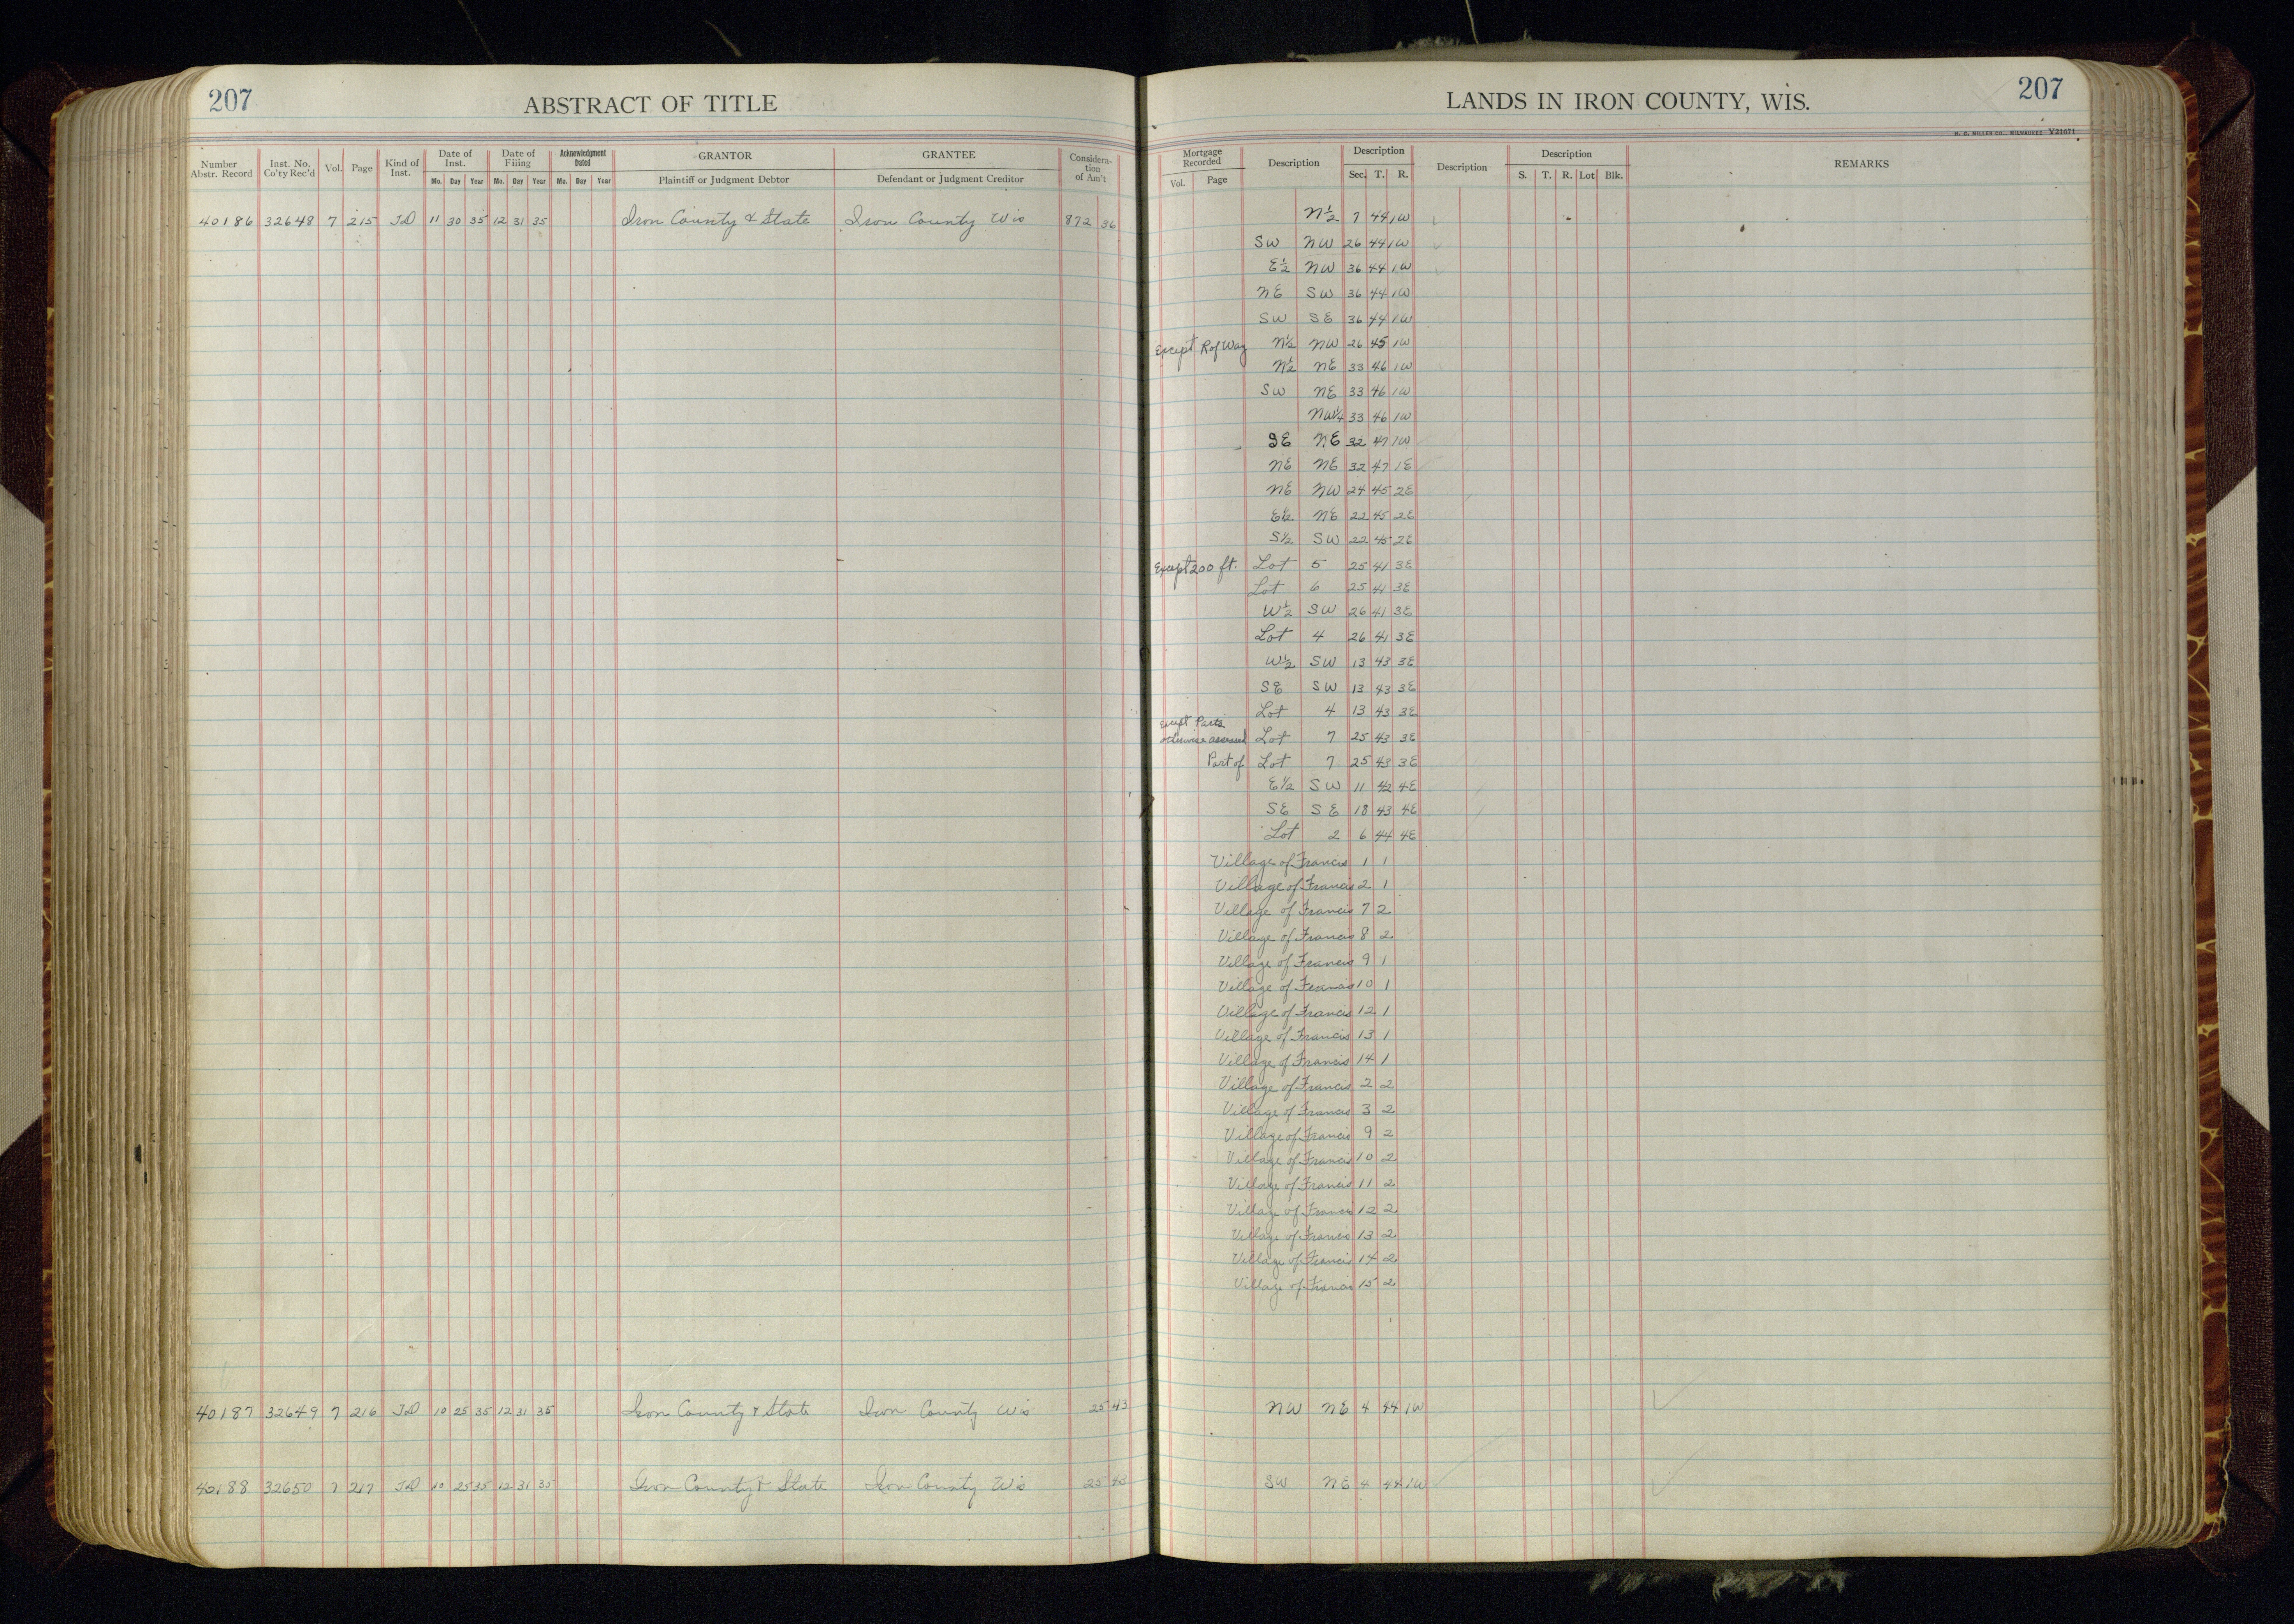 207 ABSTRACT OF TITLE
LANDS IN IRON COUNTY, WIS. 207
H. C. MILLER CO., MILWAUKEE V21671
Number Abstr. Record Inst. No. Co'ty Rec'd Vol. Page Kind of Inst. Date of Inst. Mo. Day Year Date of Filing Mo. Day Year Acknowledgment Dated Mo. Day Year GRANTOR Plaintiff or Judgment Debtor GRANTEE Defendant or Judgment Creditor Considera-tion of Am't
Mortgage Recorded Vol. Page Description Description Sec. T. R. Description Description S. T. R. Lot Blk. REMARKS
40186 32648 7 215 TD 11 30 35 12 31 35 Iron County & State Iron County Wis 872 36 N½ 7 44 1W
SW NW 26 44 1W
E½ NW 36 44 1W
NE SW 36 44 1W
SW SE 36 44 1W
Except R of Way N½ NW 26 45 1W
N½ NE 33 46 1W
SW NE 33 46 1W
NW¼ 33 46 1W
SE NE 32 47 1W
NE NE 32 47 1E
NE NW 24 45 2E
E½ NE 22 45 2E
S½ SW 22 45 2E
Except 200 ft. Lot 5 25 41 3E
Lot 6 25 41 3E
W½ SW 26 41 3E
Lot 4 26 41 3E
W½ SW 13 43 3E
SE SW 13 43 3E
Lot 4 13 43 3E
Except Parts
otherwise assessed Lot 7 25 43 3E
Part of Lot 7 25 43 3E
E½ SW 11 42 4E
SE SE 18 43 4E
Lot 2 6 44 4E
Village of Francis 1 1
Village of Francis 2 1
Village of Francis 7 2
Village of Francis 8 2
Village of Francis 9 1
Village of Francis 10 1
Village of Francis 12 1
Village of Francis 13 1
Village of Francis 14 1
Village of Francis 2 2
Village of Francis 3 2
Village of Francis 9 2
Village of Francis 10 2
Village of Francis 11 2
Village of Francis 12 2
Village of Francis 13 2
Village of Francis 14 2
Village of Francis 15 2
40187 32649 7 216 TD 10 25 35 12 31 35 Iron County & State Iron County Wis 25 43 NW NE 4 44 1W
40188 32650 7 217 TD 10 25 35 12 31 35 Iron County & State Iron County Wis 25 43 SW NE 4 44 1W